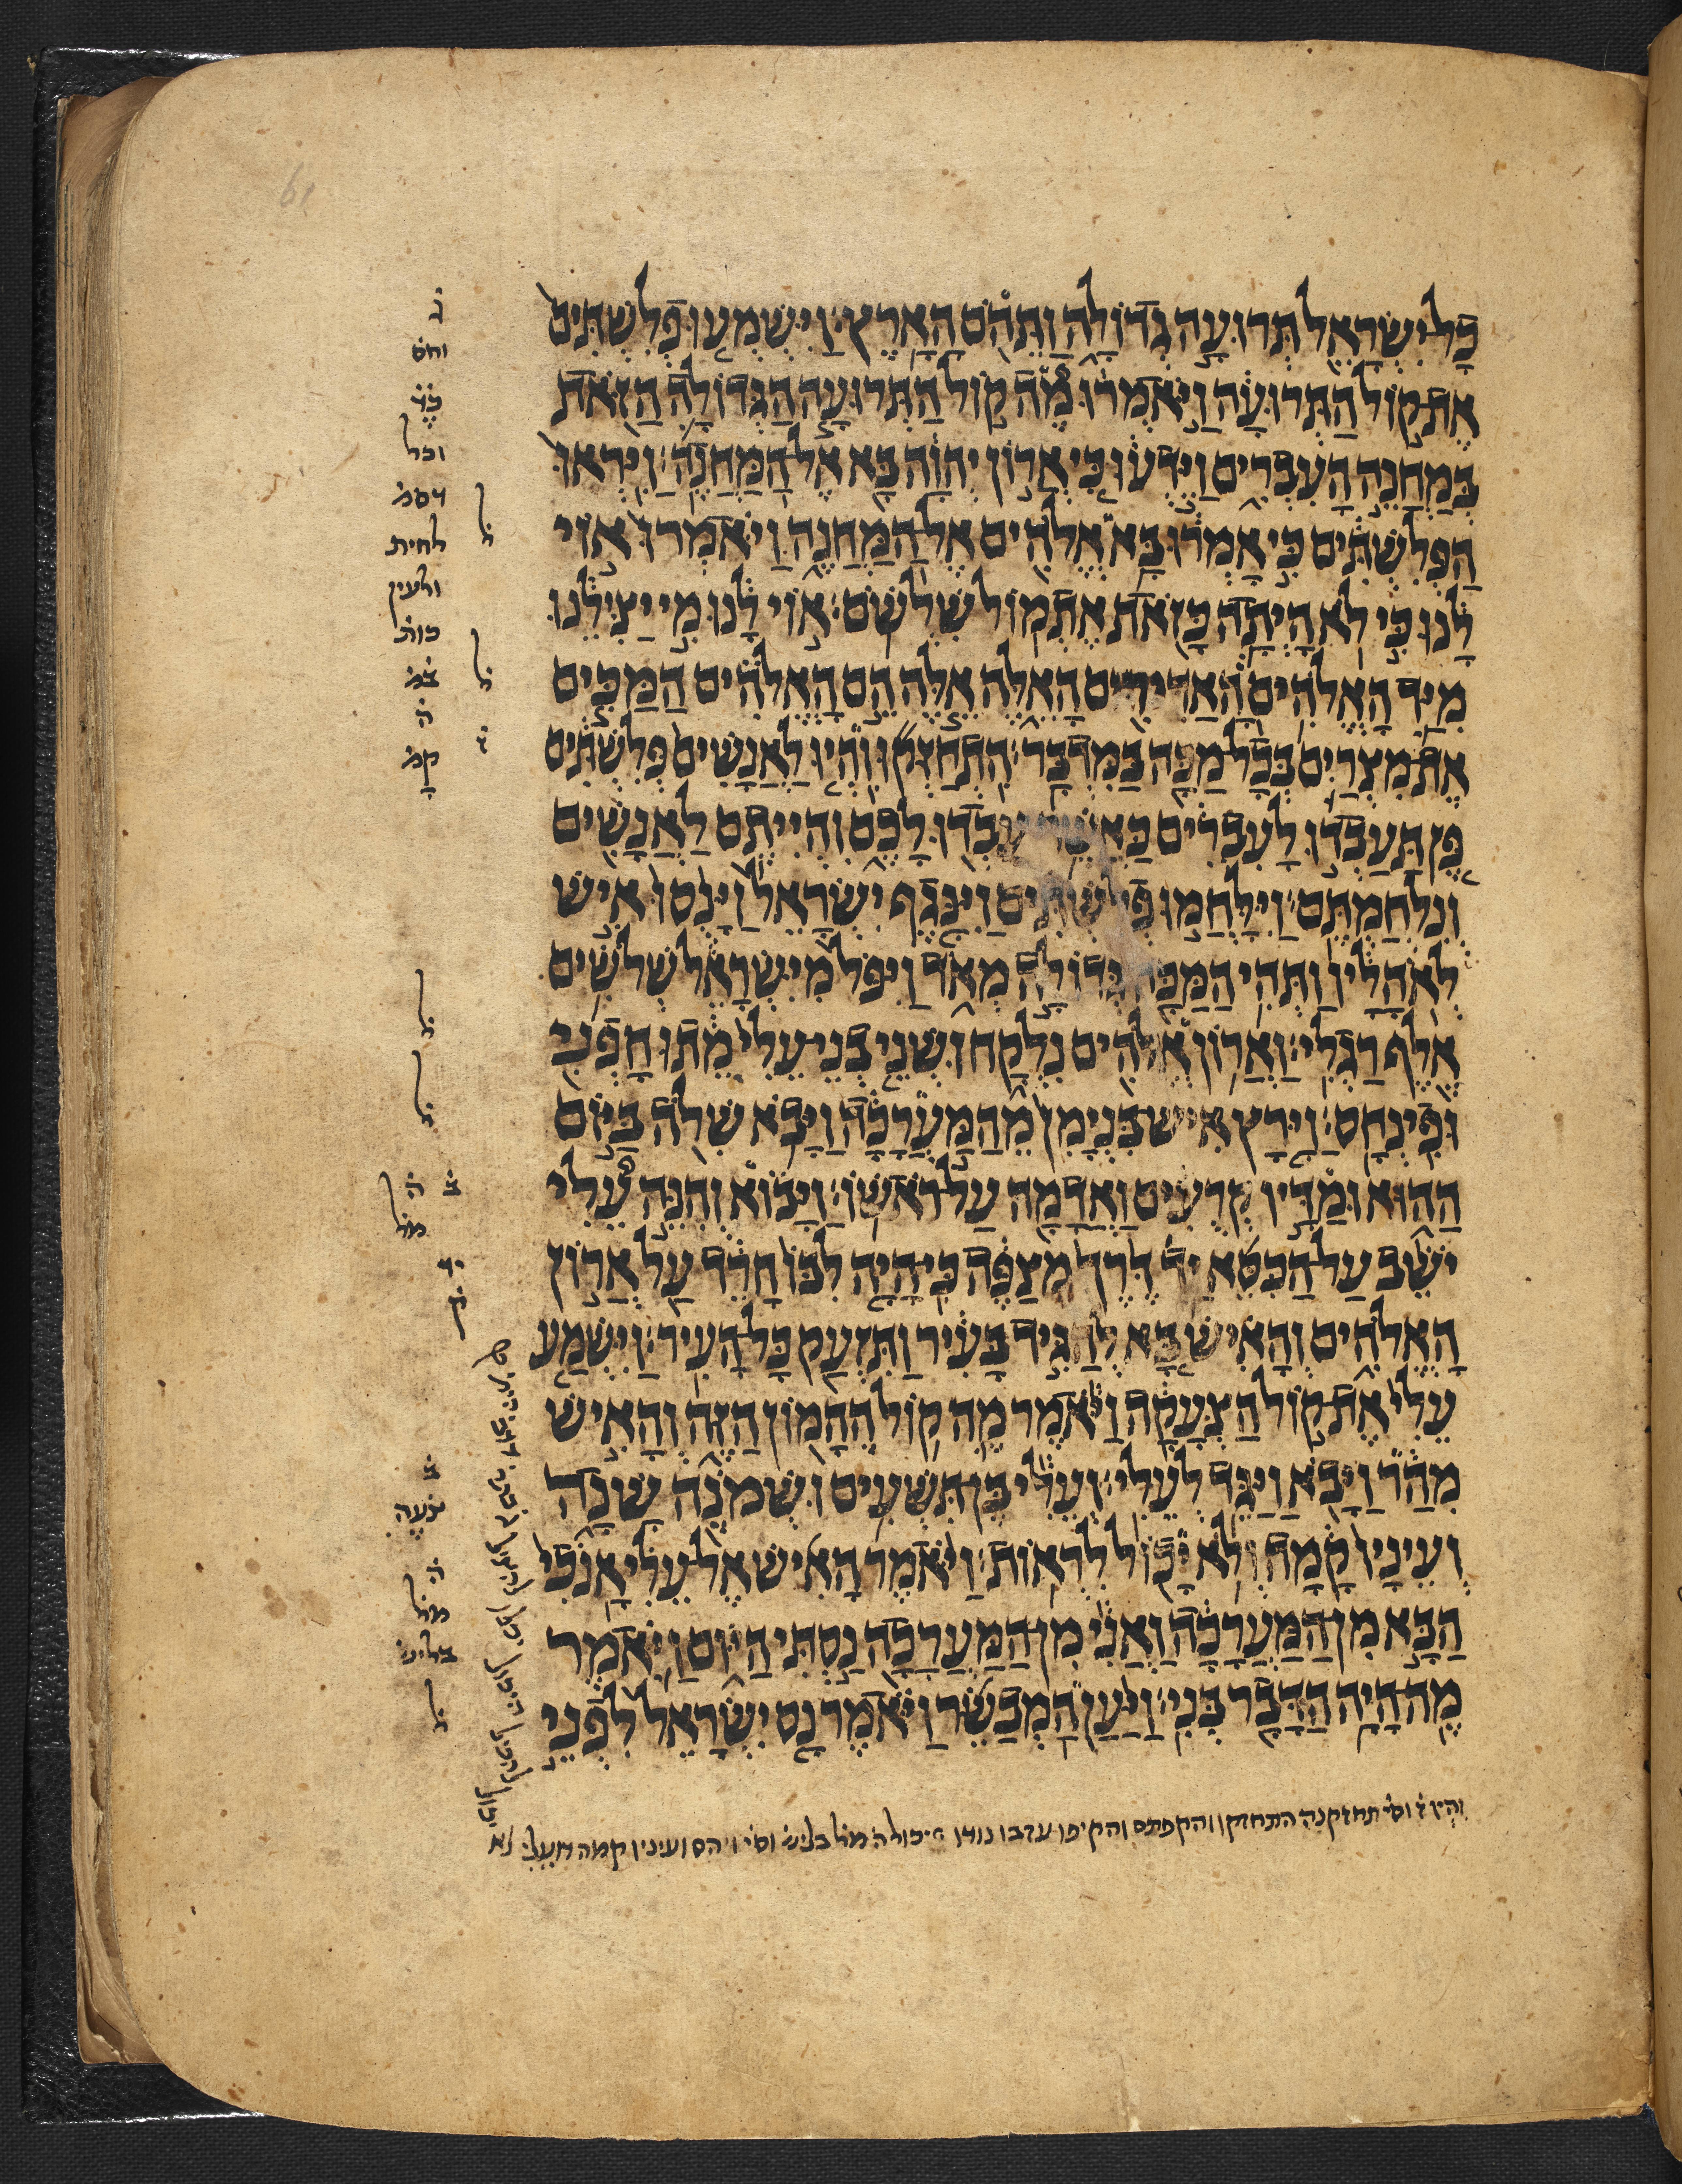 כׇּל יִשְׂרָאֵל תְּרוּעָה גְדוֹלָה וַתֵּהֹם הָאָרֶץ׃ וַיִּשְׁמְעוּ פְלִשְׁתִּים
אֶת קוֹל הַתְּרוּעָה וַיֹּאמְרוּ מֶה קוֹל הַתְּרוּעָה הַגְּדוֹלָה הַזֹּאת
בְּמַחֲנֵה הָעִבְרִים וַיֵּדְעוּ כִּי אֲרוֹן יְהוָה בָּא אֶל הַמַּחֲנֶה׃ וַיִּרְאוּ
הַפְּלִשְׁתִּים כִּי אָמְרוּ בָּא אֱלֹהִים אֶל הַמַּחֲנֶה וַיֹּאמְרוּ אוֹי
לָנוּ כִּי לֹא הָיְתָה כָּזֹאת אֶתְמוֹל שִׁלְשֹׁם׃ אוֹי לָנוּ מִי יַצִּילֵנוּ
מִיַּד הָאֱלֹהִים הָאַדִּירִים הָאֵלֶּה אֵלֶּה הֵם הָאֱלֹהִים הַמַּכִּים
אֶת מִצְרַיִם בְּכׇל מַכָּה בַּמִּדְבָּר׃ הִתְחַזְּקוּ וִהְיוּ לַאֲנָשִׁים פְּלִשְׁתִּים
פֶּן תַּעַבְדוּ לָעִבְרִים כַּאֲשֶׁר עָבְדוּ לָכֶם וִהְיִיתֶם לַאֲנָשִׁים
וְנִלְחַמְתֶּם׃ וַיִּלָּחֲמוּ פְלִשְׁתִּים וַיִּנָּגֶף יִשְׂרָאֵל וַיָּנֻסוּ אִישׁ
לְאֹהָלָיו וַתְּהִי הַמַּכָּה גְּדוֹלָה מְאֹד וַיִּפֹּל מִיִּשְׂרָאֵל שְׁלֹשִׁים
אֶלֶף רַגְלִי׃ וַאֲרוֹן אֱלֹהִים נִלְקָח וּשְׁנֵי בְנֵי עֵלִי מֵתוּ חׇפְנִי
וּפִינְחָס׃ וַיָּרׇץ אִישׁ בִּנְיָמִן מֵהַמַּעֲרָכָה וַיָּבֹא שִׁלֹה בַּיּוֹם
הַהוּא וּמַדָּיו קְרֻעִים וַאֲדָמָה עַל רֹאשׁוֹ׃ וַיָּבוֹא וְהִנֵּה עֵלִי
יֹשֵׁב עַל הַכִּסֵּא יַד דֶּרֶךְ מְצַפֶּה כִּי הָיָה לִבּוֹ חָרֵד עַל אֲרוֹן
הָאֱלֹהִים וְהָאִישׁ בָּא לְהַגִּיד בָּעִיר וַתִּזְעַק כׇּל הָעִיר׃ וַיִּשְׁמַע
עֵלִי אֶת קוֹל הַצְּעָקָה וַיֹּאמֶר מֶה קוֹל הֶהָמוֹן הַזֶּה וְהָאִישׁ
מִהַר וַיָּבֹא וַיַּגֵּד לְעֵלִי׃ וְעֵלִי בֶּן תִּשְׁעִים וּשְׁמֹנֶה שָׁנָה
וְעֵינָיו קָמָה וְלֹא יָכוֹל לִרְאוֹת׃ וַיֹּאמֶר הָאִישׁ אֶל עֵלִי אָנֹכִי
הַבָּא מִן הַמַּעֲרָכָה וַאֲנִי מִן הַמַּעֲרָכָה נַסְתִּי הַיּוֹם וַיֹּאמֶר
מֶה הָיָה הַדָּבָר בְּנִי׃ וַיַּעַן הַמְבַשֵּׂר וַיֹּאמֶר נָס יִשְׂרָאֵל לִפְנֵי